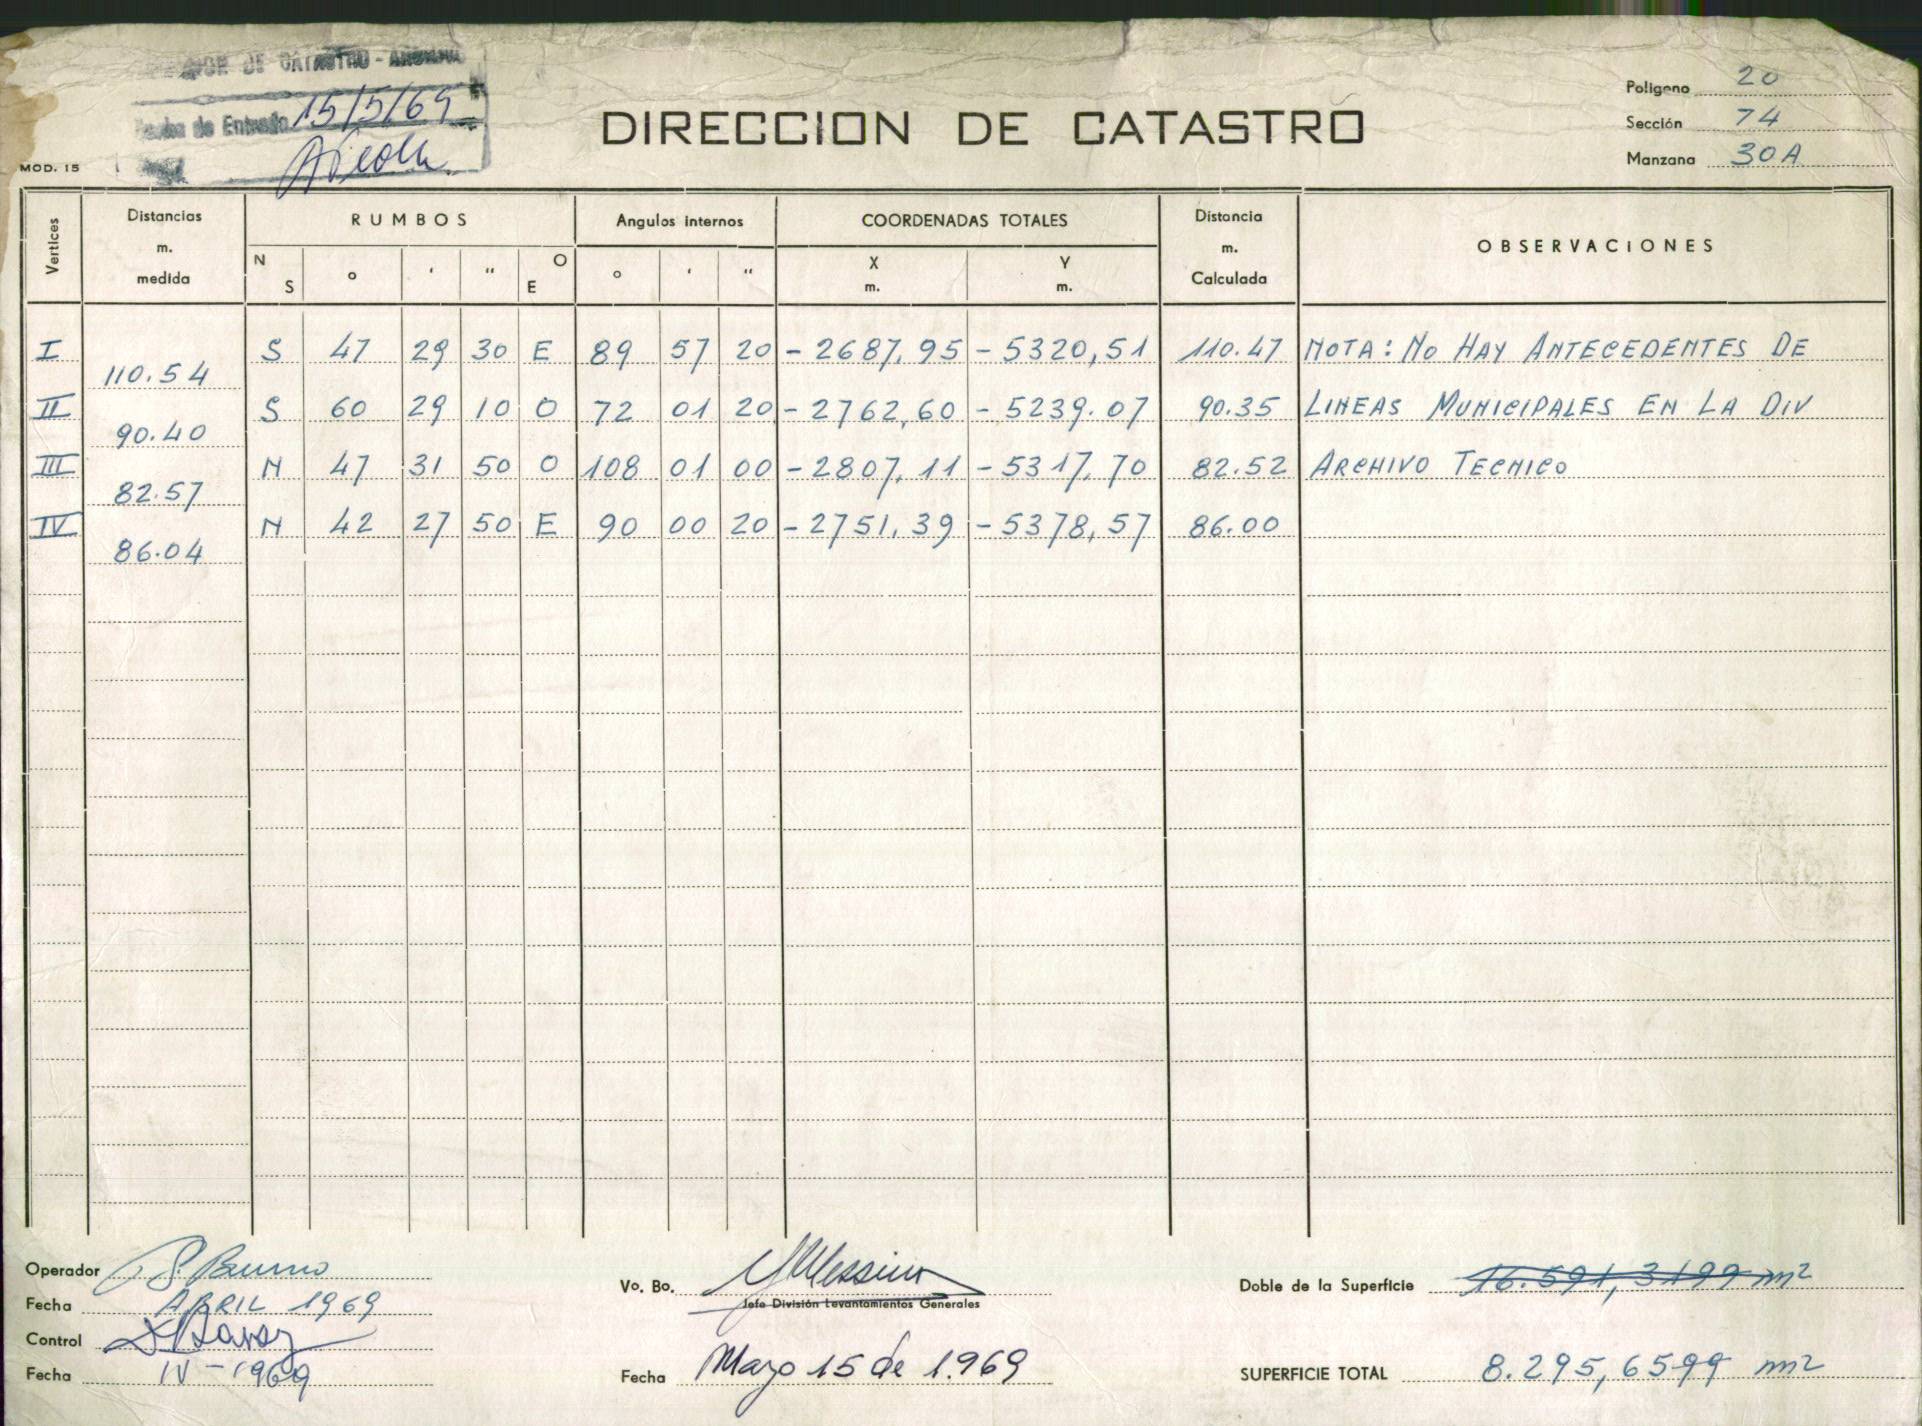 DE CATASTRO -
Fecha de Entrada 15/5/69
MOD. 15
DIRECCION DE CATASTRO
Poligono 20
Sección 74
Manzana 30A
Vertices Distancias m. medida RUMBOS Angulos internos COORDENADAS TOTALES Distancia m. Calculada OBSERVACIONES
N S ° ' " O E ° ' " X m. Y m.
I S 47 29 30 E 89 57 20 -2687,95 -5320,51 110.47 NOTA: No HAY ANTECEDENTES DE
110.54
II S 60 29 10 O 72 01 20 -2762,60 -5239.07 90.35 LINEAS MUNICIPALES EN LA DIV
90.40
III N 47 31 50 O 108 01 00 -2807,11 -5317,70 82.52 ARCHIVO TECNICO
82.57
IV N 42 27 50 E 90 00 20 -2751,39 -5378,57 86.00
86.04
Operador
Fecha ABRIL 1969
Control
Fecha IV-1969
Vo. Bo.
Jefe División Levantamientos Generales
Fecha Mayo 15 de 1.969
Doble de la Superficie 16.591,3199 m2
SUPERFICIE TOTAL 8.295,6599 m2